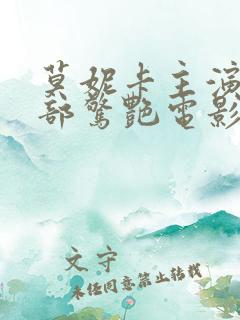 莫妮卡主演
部驚艷電影
文守
未经同意禁止转载